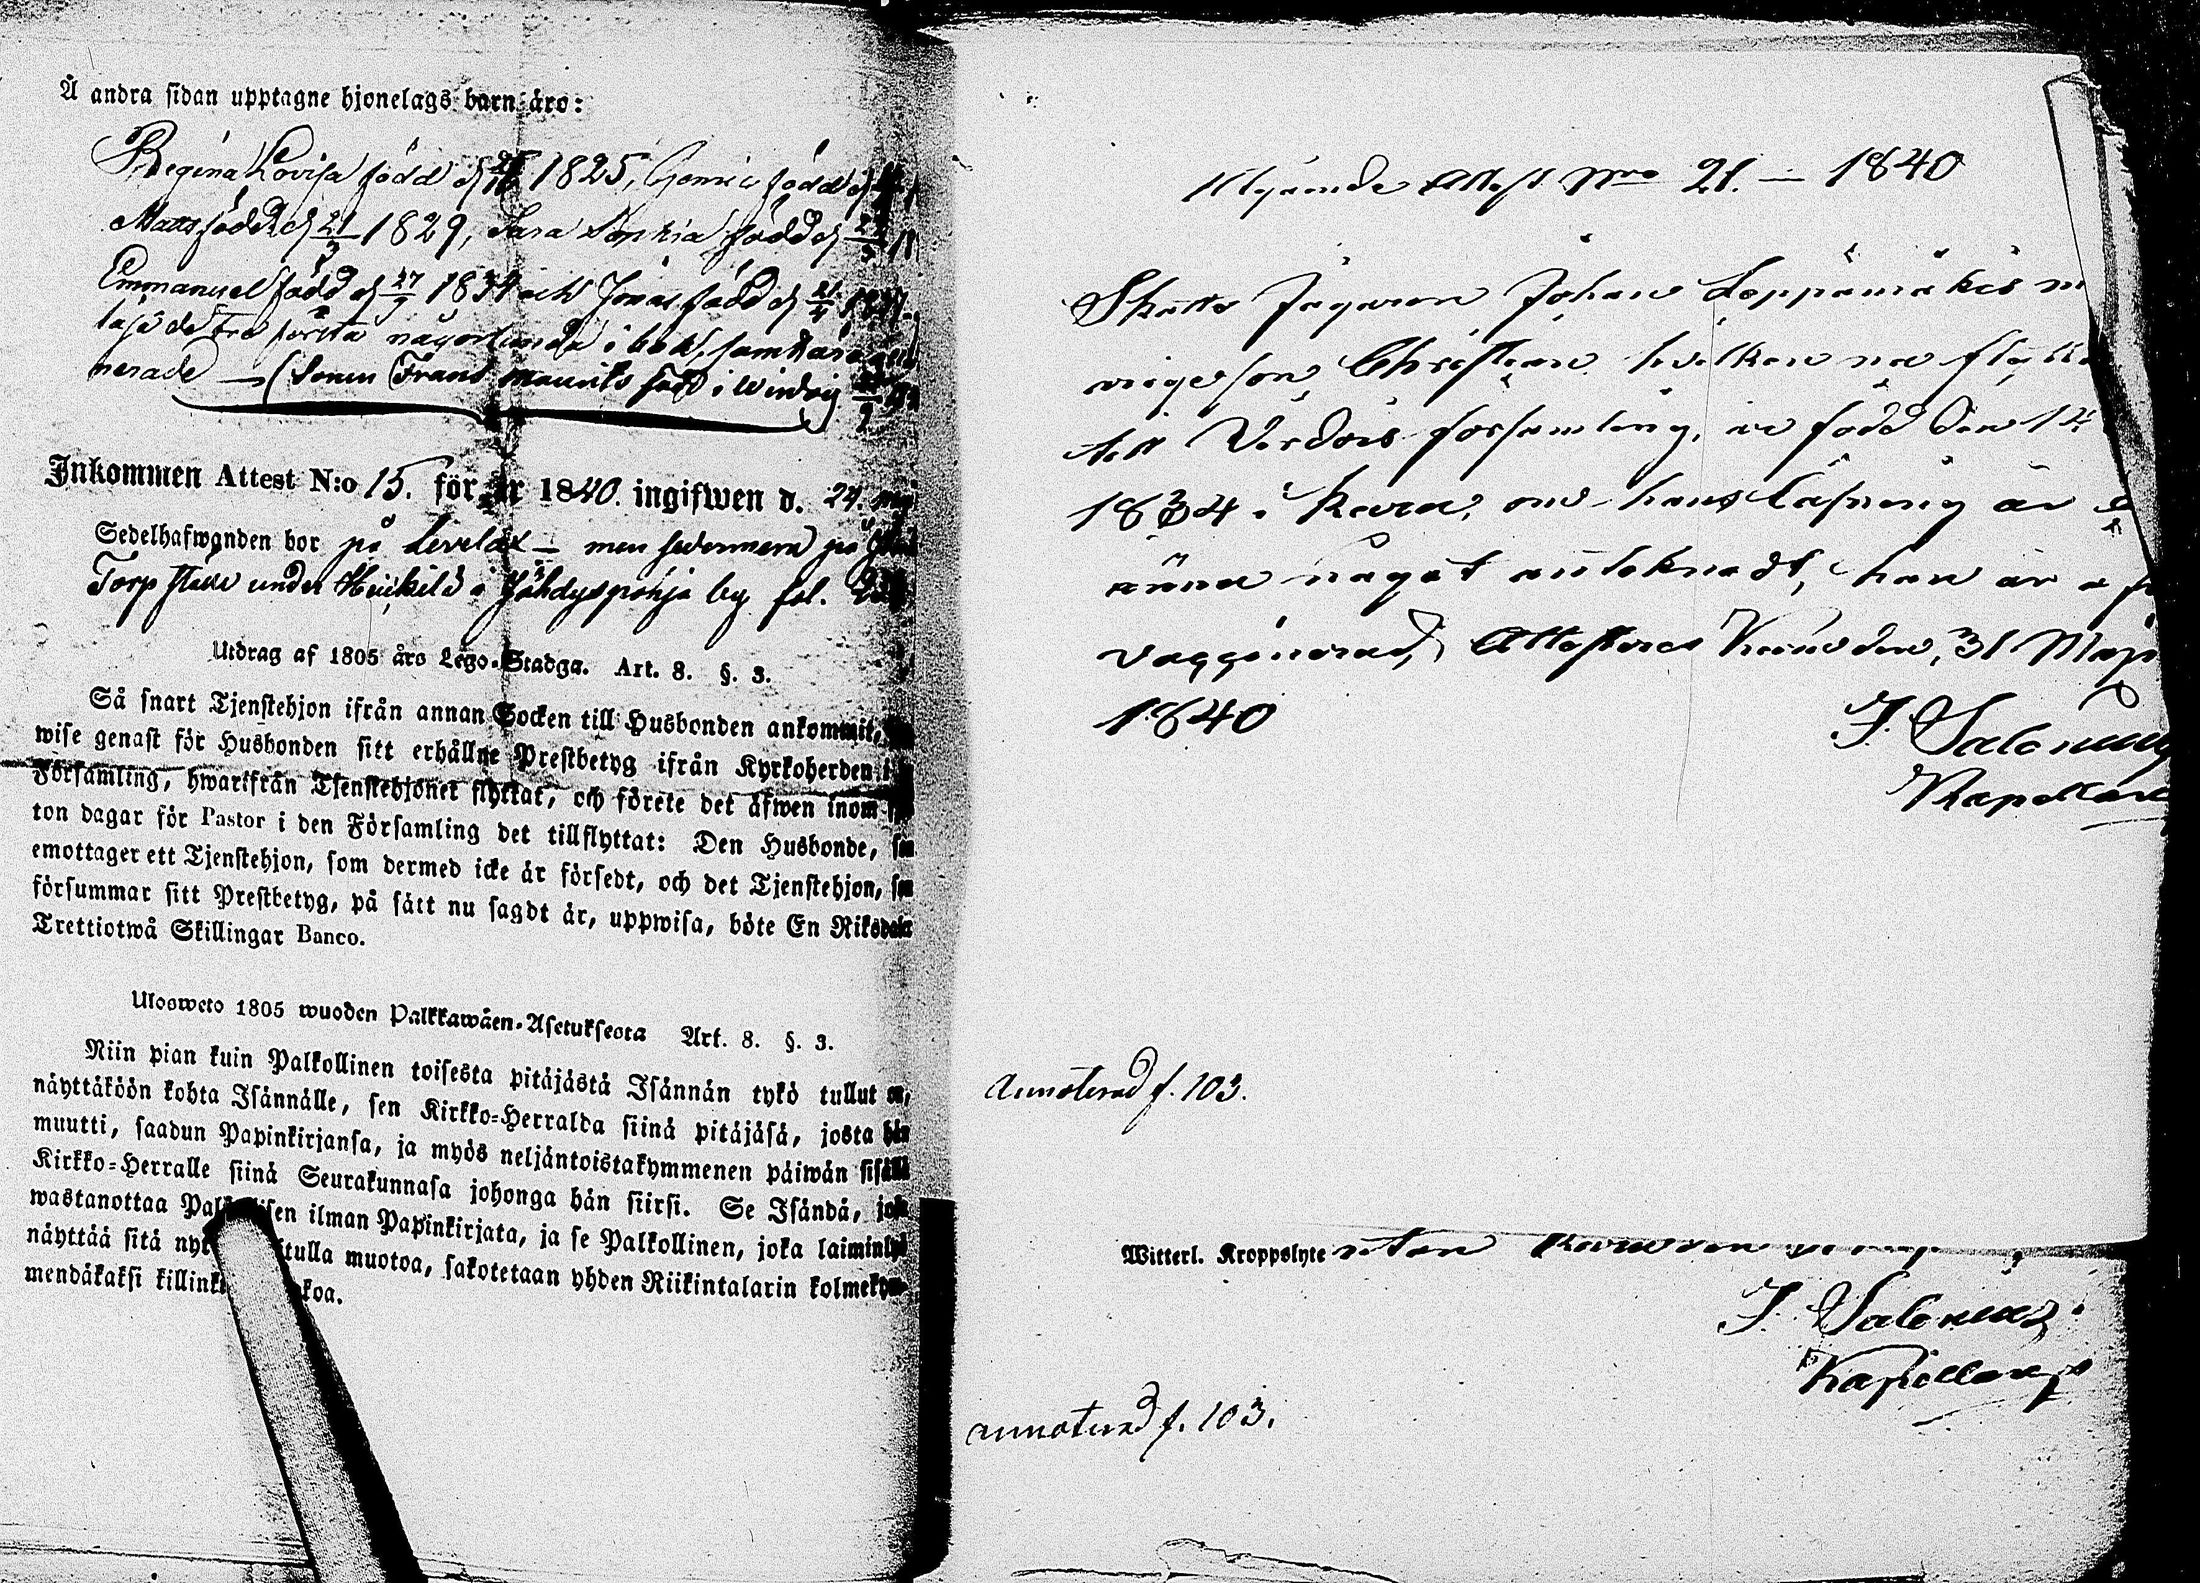 Å andra sidan upptagne hjonelags barn äro:
Regina Lovisa född d 1825, Henric född d
Matts född d 21/3 1829, Sara Sophia född d
Emmanuel född d 27/9 1834 och Jonas född d
läse de tre första någorlunda i bok, samt äro
nerade — (Sonen Frans Maurits född i
Inkommen Attest N:o 15. för år 1840. ingifwen d. 24. Maj
Sedelhafwanden bor på Levelax — men sedermera på
Torp ställe under Heikilä i Jöhdyspohja by fol.
Utdrag af 1805 års Lego-Stadga. Art. 8. §. 3.
Så snart Tjenstehjon ifrån annan Socken till Husbonden ankommit,
wise genast för Husbonden sitt erhållne Prestbetyg ifrån Kyrkoherden i
Församling, hwarifrån Tjenstehjonet flyttat, och förete det äfwen inom
ton dagar för Pastor i den Församling det tillflyttat: Den Husbonde, som
emottager ett Tjenstehjon, som dermed icke är försedt, och det Tjenstehjon, som
försummar sitt Prestbetyg, på sätt nu sagdt är, uppwisa, böte En Riksdaler
Trettiotwå Skillingar Banco.
Ulosweto 1805 wuoden Palkkawäen-Asetuksesta Art. 8. §. 3.
Niin pian kuin Palkollinen toisesta pitäjästä Isännän tykö tullut on,
näyttäköön kohta Isännälle, sen Kirkko-Herralda siinä pitäjäsä, josta hän
muutti, saadun Papinkirjansa, ja myös neljäntoistakymmenen päiwän sisällä
Kirkko-Herralle siinä Seurakunnasa johonga hän siirsi. Se Isändä, joka
wastanottaa Palkollisen ilman Papinkirjata, ja se Palkollinen, joka laiminlyö
näyttää sitä nyt tulla muotoa, sakotetaan yhden Riikintalarin kolmekym-
mendäkaksi killink koa.
Utgående Attest Nro 21. — 1840
Skatts Jägaren Johan Leppämäkis
rige son Christian hvilken nu flytta
till Virdois församling, är född den 12
1834 i Karv, om hans läsning är
ännu något antecknadt, han är
vaccinerad, Attesteras den, 31 Maji
1840
J. Salonius
Kapellan
Annoterad f. 103.
Witterl. Kroppslyte utan
J. Salonius
Kapellan
annoterad f. 103.